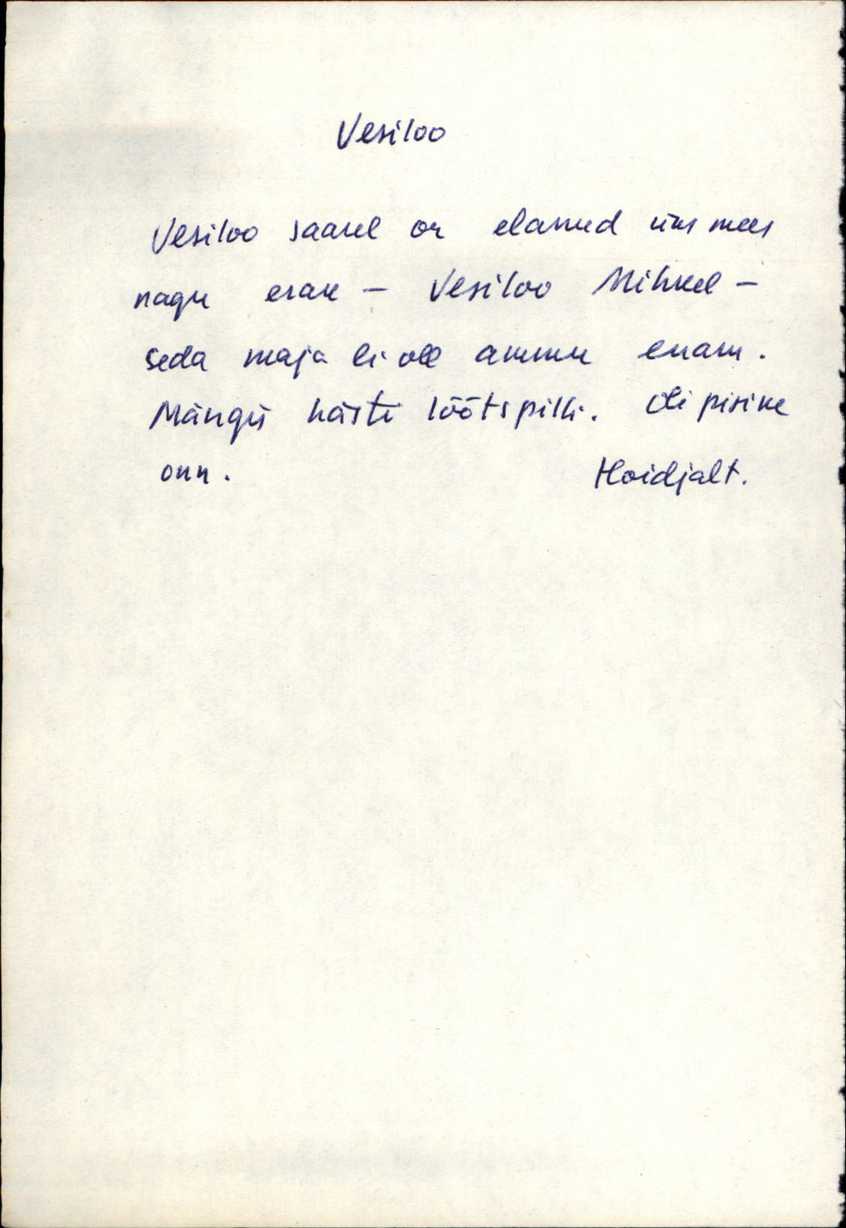 Vesiloo
Vesiloo saarel on elanud üks mees
nagu erak – Vesiloo Mihkel –
seda maja ei ole ammu enam.
Mängis hästi lõõtspilli. Oli pisike
onn. Hoidjalt.